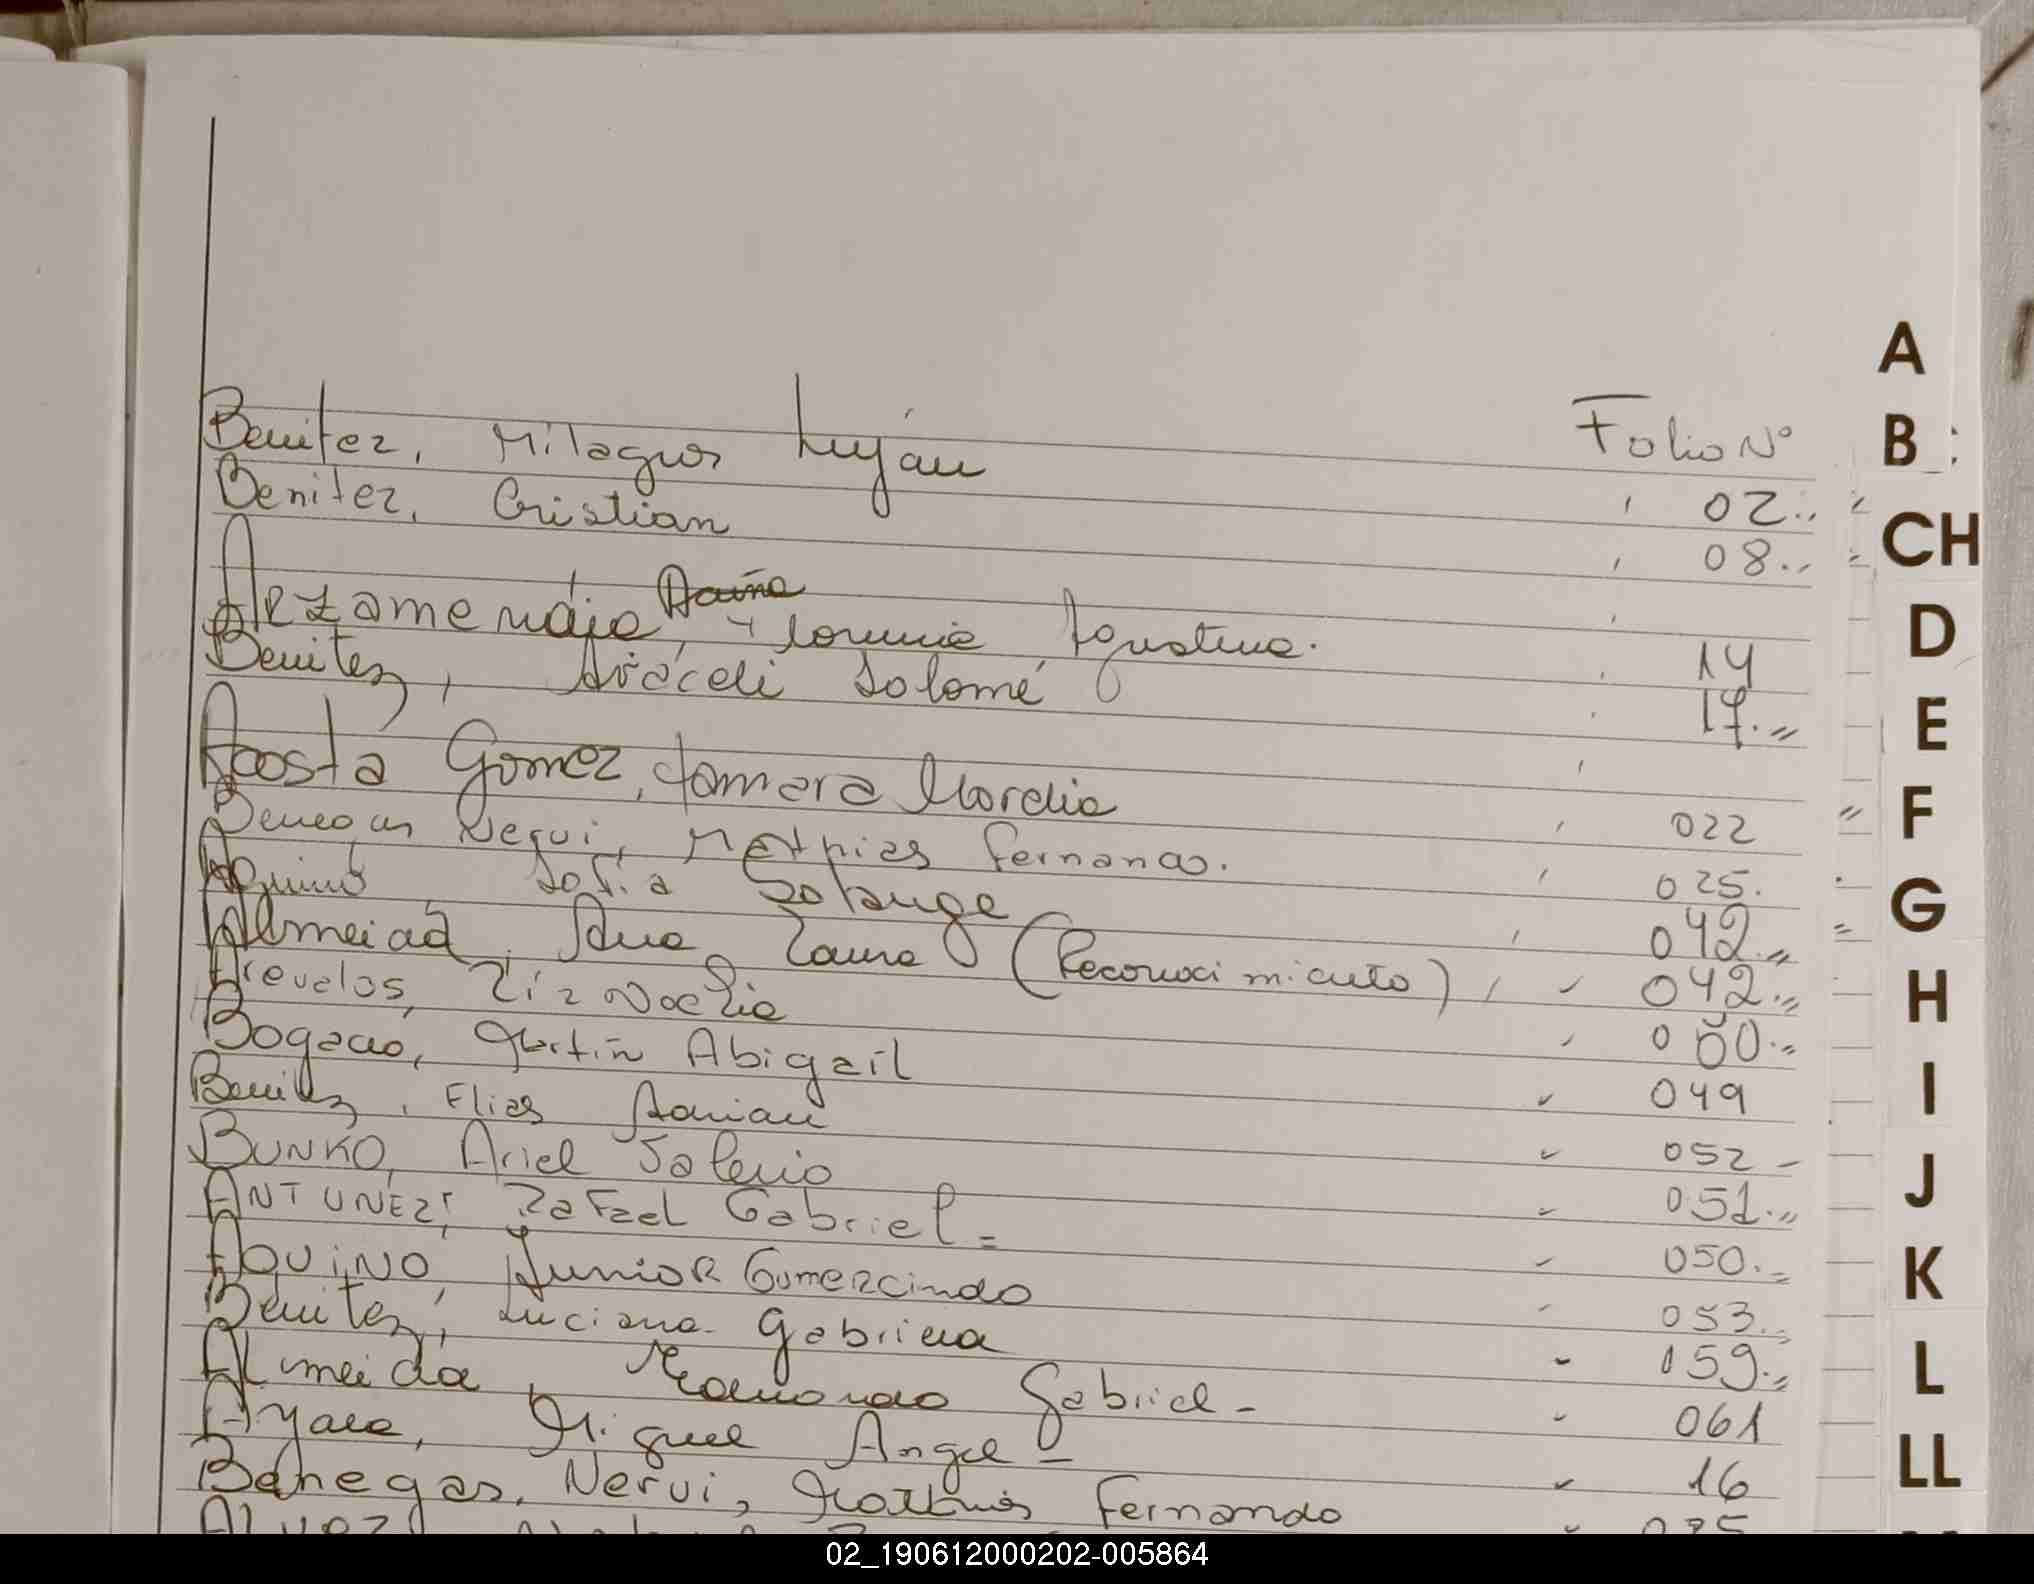 Folio Nº
Benitez, Milagros Luján 02
Benitez, Cristian 08
Arzamendia, Agustina. 14
Benitez, Araceli Salomé 17
Acosta Gomez, Tamara 022
Benegas Nervi, Mathias Fernando. 025.
Aquino Sofia Solange 042
Almeida, Ana Laura (Reconocimiento) 042
Arevalos, Liz Noelia 050
Bogado, Abigail 049
Benitez, Elias Adrian 052
BUNKO, Ariel 051
ANTUNEZ, Rafael Gabriel 050
AQUINO, JUNIOR Gumercindo 053
Benitez, Luciana Gabriela 059
Almeida, Gabriel - 061
Ayala, Miguel Angel - 16
Benegas, Nervi, Mathias Fernando 025
A
B
CH
D
E
F
G
H
I
J
K
L
LL
02_190612000202-005864